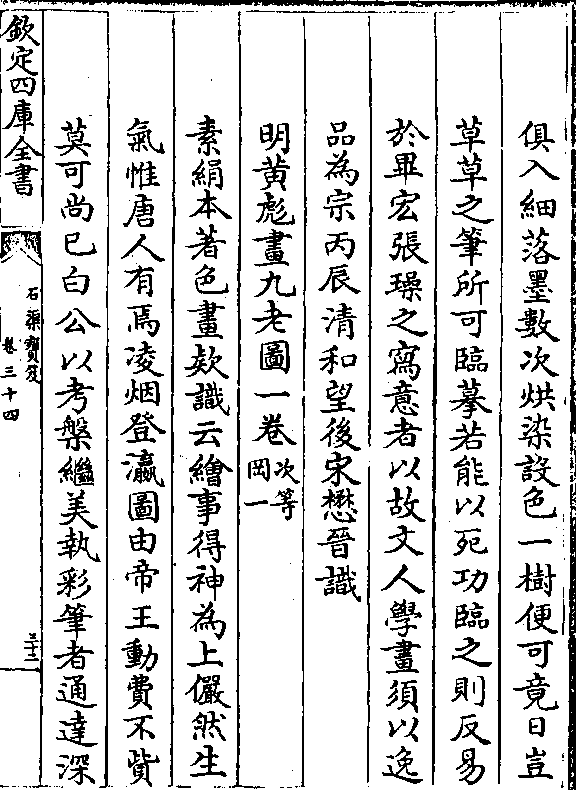 俱入細落墨數次烘染設色一樹便可竟日豈
草草之筆所可臨摹若能以死功臨之則反易
於畢宏張璪之寫意者以故文人學畫須以逸
品為宗丙辰清和望後宋懋晉識
明黄彪畫九老圖一卷次等
岡一
素絹本著色畫欵識云繪事得神為上儼然生
氣惟唐人有焉凌烟登瀛圖由帝王動費不貲
莫可尚已白公以考槃繼美執彩筆者通達深
欽定四庫全書
石渠寶笈
卷三十四
三十二